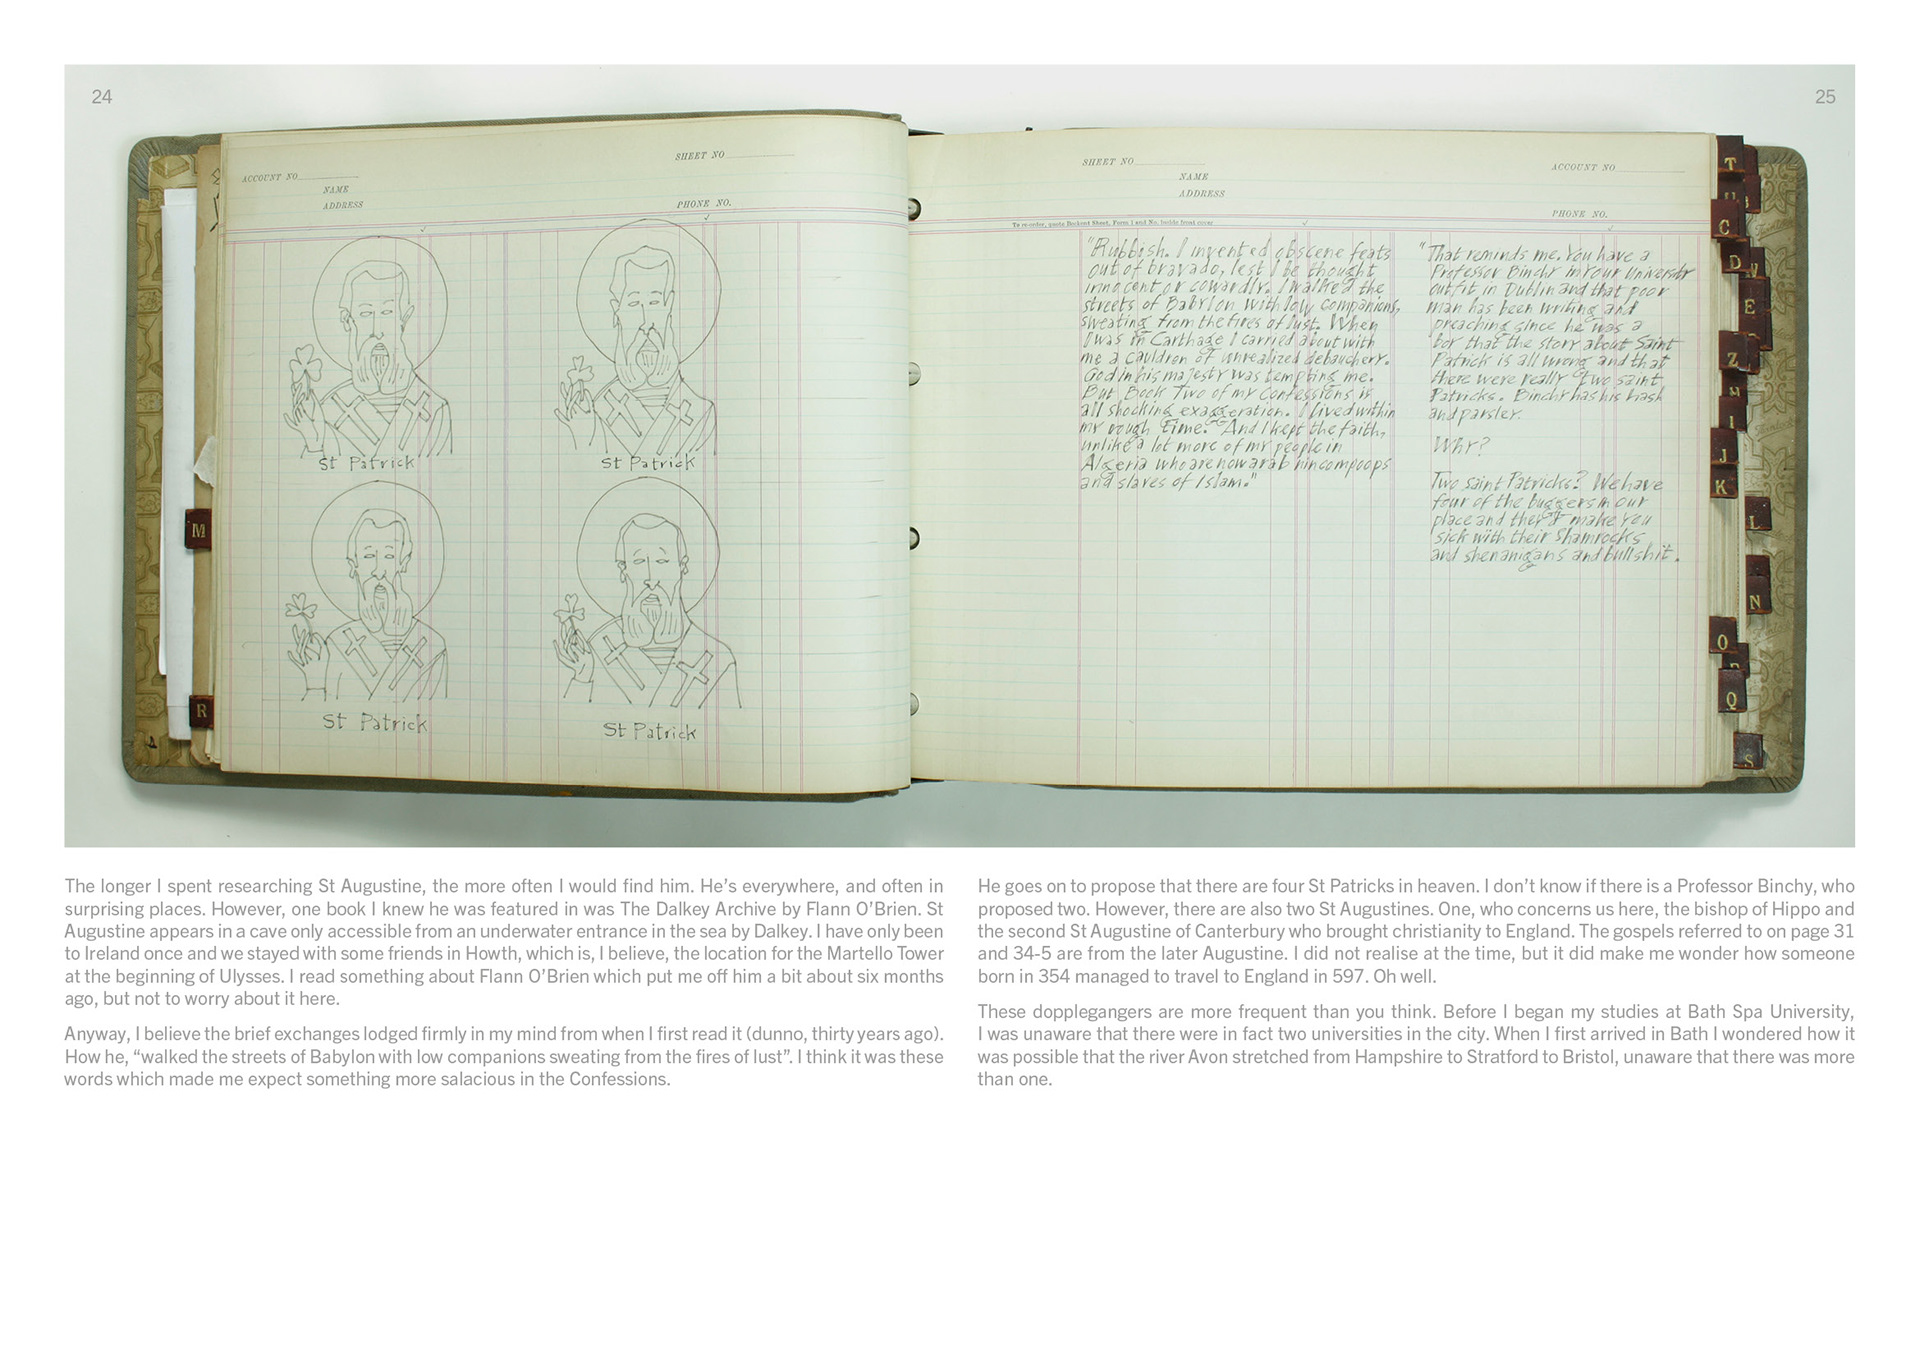 24
25
SHEET NO
ACCOUNT NO
NAME
ADDRESS
PHONE NO.
St Patrick
St Patrick
St Patrick
St Patrick
M
R
SHEET NO
ACCOUNT NO
NAME
ADDRESS
PHONE NO.
To re-order, quote Beckout Sheet, Form 1 and No. inside front cover
"Rubbish. I invented obscene feats
out of bravado, lest I be thought
innocent or cowardly. I walked the
streets of Babylon with low companions,
sweating from the fires of lust. When
I was in Carthage I carried about with
me a cauldron of unrealized debauchery.
God in his majesty was tempting me.
But Book Two of my Confessions is
all shocking exaggeration. I lived within
my rough time. And I kept the faith,
unlike a lot more of my people in
Algeria who are now arab nincompoops
and slaves of Islam."
"That reminds me. You have a
Professor Binchy in your University
outfit in Dublin and that poor
man has been writing and
preaching since he was a
boy that the story about Saint
Patrick is all wrong and that
there were really two saint
Patricks. Binchy has his hash
and parsley.
Why?
Two saint Patricks? We have
four of the buggers in our
place and they'd make you
sick with their shamrocks
and shenanigans and bullshit.
T
C
D
E
Z
I
J
K
L
N
O
Q
S
The longer I spent researching St Augustine, the more often I would find him. He's everywhere, and often in
surprising places. However, one book I knew he was featured in was The Dalkey Archive by Flann O'Brien. St
Augustine appears in a cave only accessible from an underwater entrance in the sea by Dalkey. I have only been
to Ireland once and we stayed with some friends in Howth, which is, I believe, the location for the Martello Tower
at the beginning of Ulysses. I read something about Flann O'Brien which put me off him a bit about six months
ago, but not to worry about it here.
Anyway, I believe the brief exchanges lodged firmly in my mind from when I first read it (dunno, thirty years ago).
How he, "walked the streets of Babylon with low companions sweating from the fires of lust". I think it was these
words which made me expect something more salacious in the Confessions.
He goes on to propose that there are four St Patricks in heaven. I don't know if there is a Professor Binchy, who
proposed two. However, there are also two St Augustines. One, who concerns us here, the bishop of Hippo and
the second St Augustine of Canterbury who brought christianity to England. The gospels referred to on page 31
and 34-5 are from the later Augustine. I did not realise at the time, but it did make me wonder how someone
born in 354 managed to travel to England in 597. Oh well.
These dopplegangers are more frequent than you think. Before I began my studies at Bath Spa University,
I was unaware that there were in fact two universities in the city. When I first arrived in Bath I wondered how it
was possible that the river Avon stretched from Hampshire to Stratford to Bristol, unaware that there was more
than one.